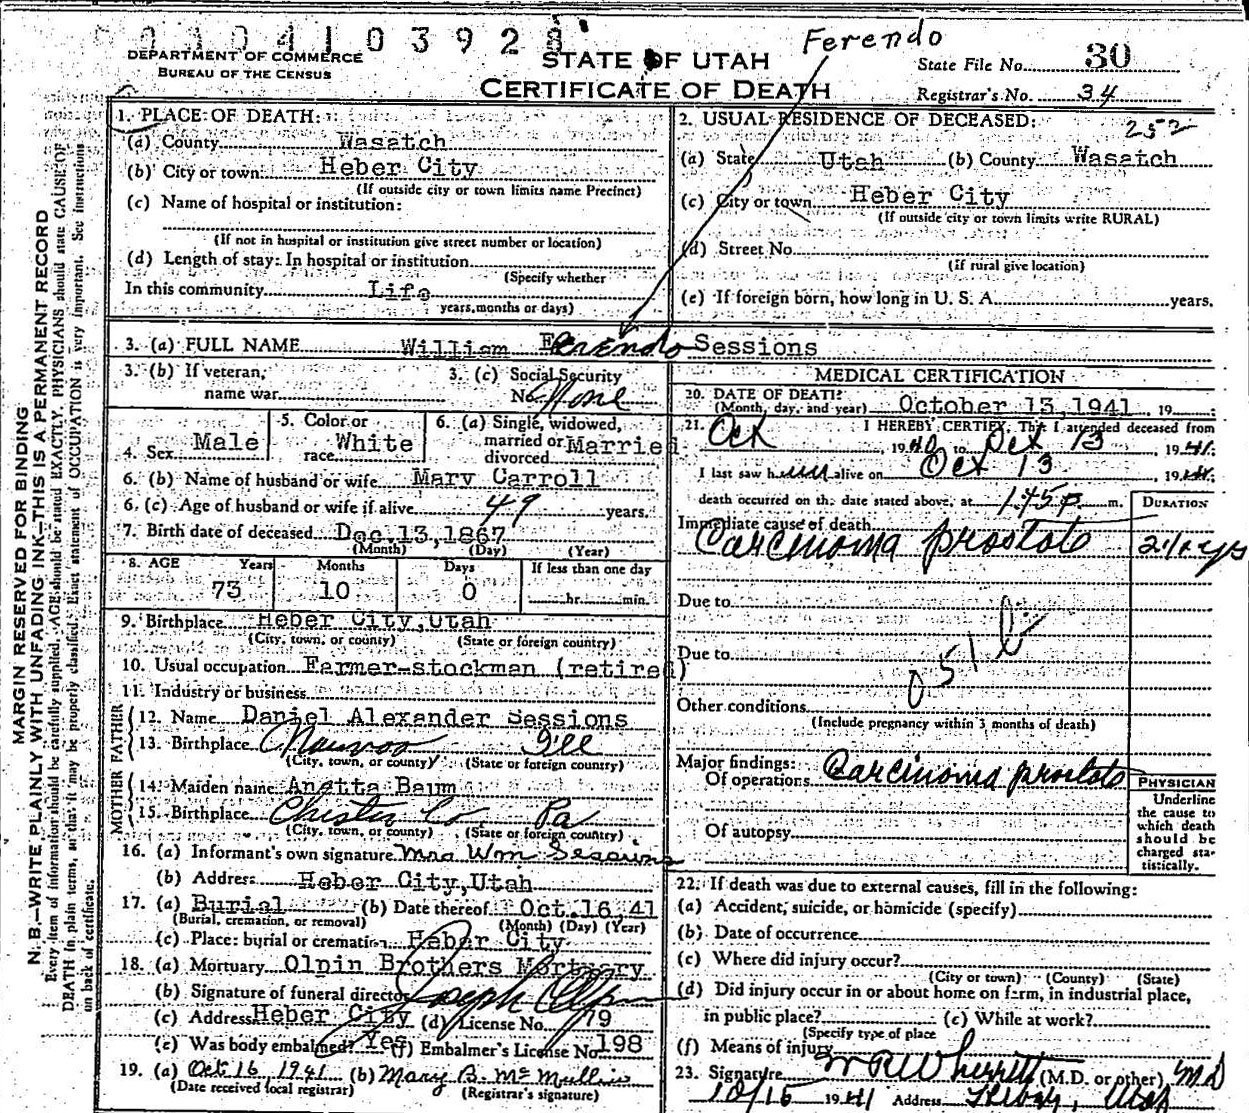 0 1 0 4 1 0 3 9 2 8
Ferendo
DEPARTMENT OF COMMERCE
BUREAU OF THE CENSUS
STATE OF UTAH
CERTIFICATE OF DEATH
State File No. 30
Registrar's No. 34
MARGIN RESERVED FOR BINDING
N. B.—WRITE PLAINLY WITH UNFADING INK—THIS IS A PERMANENT RECORD
Every item of information should be carefully supplied. AGE should be stated EXACTLY. PHYSICIANS should state CAUSE OF
DEATH in plain terms, so that it may be properly classified. Exact statement of OCCUPATION is very important. See instructions
on back of certificate.
1. PLACE OF DEATH:
(a) County Wasatch
(b) City or town: Heber City
(If outside city or town limits name Precinct)
(c) Name of hospital or institution:
(If not in hospital or institution give street number or location)
(d) Length of stay: In hospital or institution
(Specify whether
In this community Life
years, months or days)
2. USUAL RESIDENCE OF DECEASED: 252
(a) State Utah (b) County Wasatch
(c) City or town Heber City
(If outside city or town limits write RURAL)
(d) Street No.
(If rural give location)
(e) If foreign born, how long in U. S. A. years.
3. (a) FULL NAME William Ferendo Sessions
3. (b) If veteran,
name war
3. (c) Social Security
No. None
4. Sex Male
5. Color or
race White
6. (a) Single, widowed,
married or
divorced Married
6. (b) Name of husband or wife Mary Carroll
6. (c) Age of husband or wife if alive 49 years.
7. Birth date of deceased Dec. 13, 1867
(Month) (Day) (Year)
8. AGE Years Months Days If less than one day
73 10 0 hr. min.
9. Birthplace Heber City, Utah
(City, town, or county) (State or foreign country)
10. Usual occupation Farmer-stockman (retired)
11. Industry or business
FATHER
12. Name Daniel Alexander Sessions
13. Birthplace Nauvoo Ill
(City, town, or county) (State or foreign country)
MOTHER
14. Maiden name Anetta Baum
15. Birthplace Chester Co Pa
(City, town, or county) (State or foreign country)
16. (a) Informant's own signature Mrs Wm Sessions
(b) Address Heber City, Utah
17. (a) Burial (b) Date thereof Oct. 16, 41
(Burial, cremation, or removal) (Month) (Day) (Year)
(c) Place: burial or cremation Heber City
18. (a) Mortuary Olpin Brothers Mortuary
(b) Signature of funeral director Joseph Olpin
(c) Address Heber City (d) License No. 79
(e) Was body embalmed? Yes (f) Embalmer's License No. 198
19. (a) Oct 16 1941 (b) Mary B. McMullin
(Date received local registrar) (Registrar's signature)
MEDICAL CERTIFICATION
20. DATE OF DEATH:
(Month, day, and year) October 13, 1941, 19
21. I HEREBY CERTIFY, That I attended deceased from
Oct, 1940, to Oct 13, 1941.
I last saw him alive on Oct 13, 1941.
death occurred on the date stated above, at 1:45 P. m.
DURATION
Immediate cause of death
Carcinoma prostate 2 1/2 yrs
Due to
Due to
051b
Other conditions
(Include pregnancy within 3 months of death)
Major findings:
Of operations Carcinoma prostate
Of autopsy
PHYSICIAN
Underline
the cause to
which death
should be
charged sta-
tistically.
22. If death was due to external causes, fill in the following:
(a) Accident, suicide, or homicide (specify)
(b) Date of occurrence
(c) Where did injury occur?
(City or town) (County) (State)
(d) Did injury occur in or about home on farm, in industrial place,
in public place? (e) While at work?
(Specify type of place
(f) Means of injury
23. Signature W R Wherritt (M.D. or other) MD
10/15 1941 Address Heber, Utah